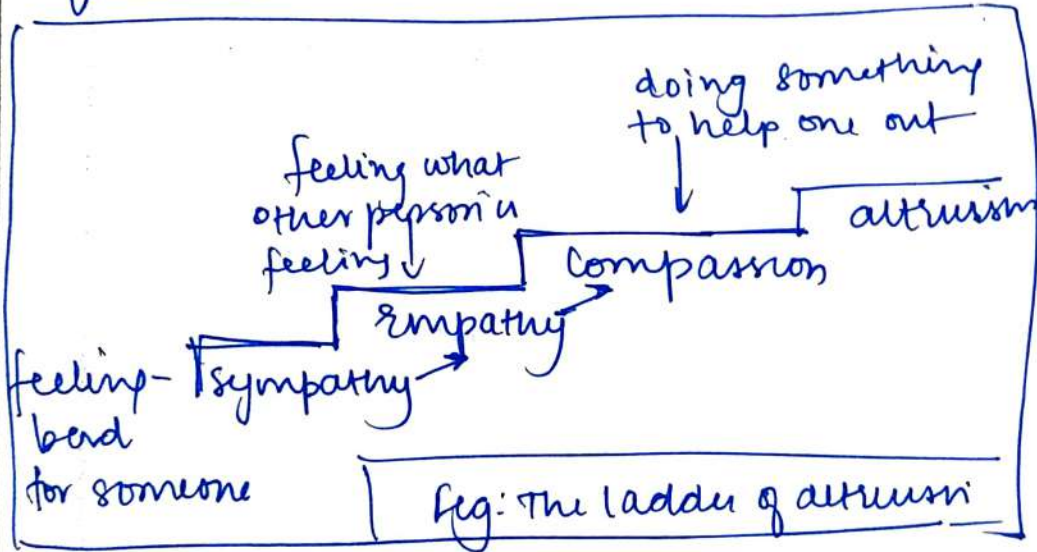 doing something
to help one out
feeling what
other person is
feeling
altruism
compassion
Empathy
sympathy
feeling-
bad
for someone
Fig: The ladder of altruism